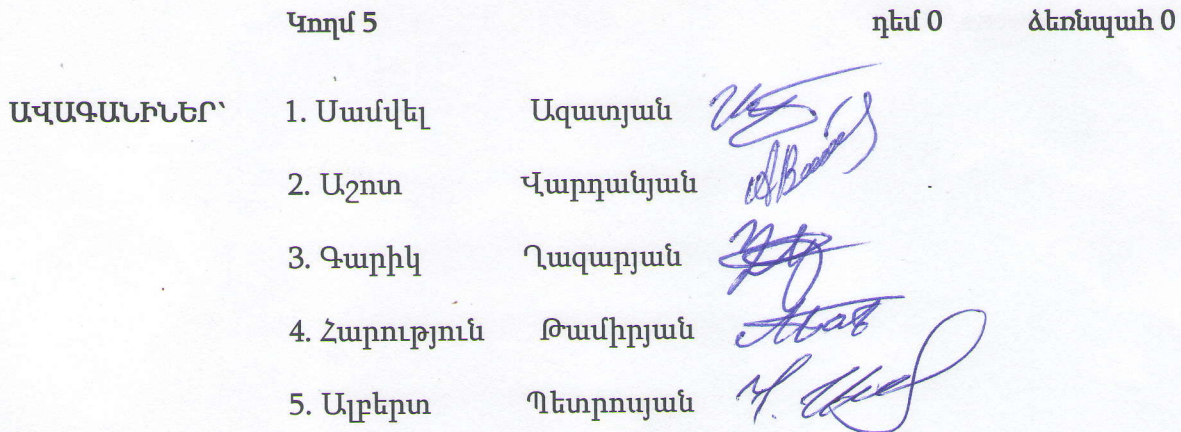 Կողմ 5 դեմ 0 ձեռնպահ 0
ԱՎԱԳԱՆԻՆԵՐ՝ 1. Սամվել Ազատյան
2. Աշոտ Վարդանյան
3. Գարիկ Ղազարյան
4. Հարություն Թամիրյան
5. Ալբերտ Պետրոսյան